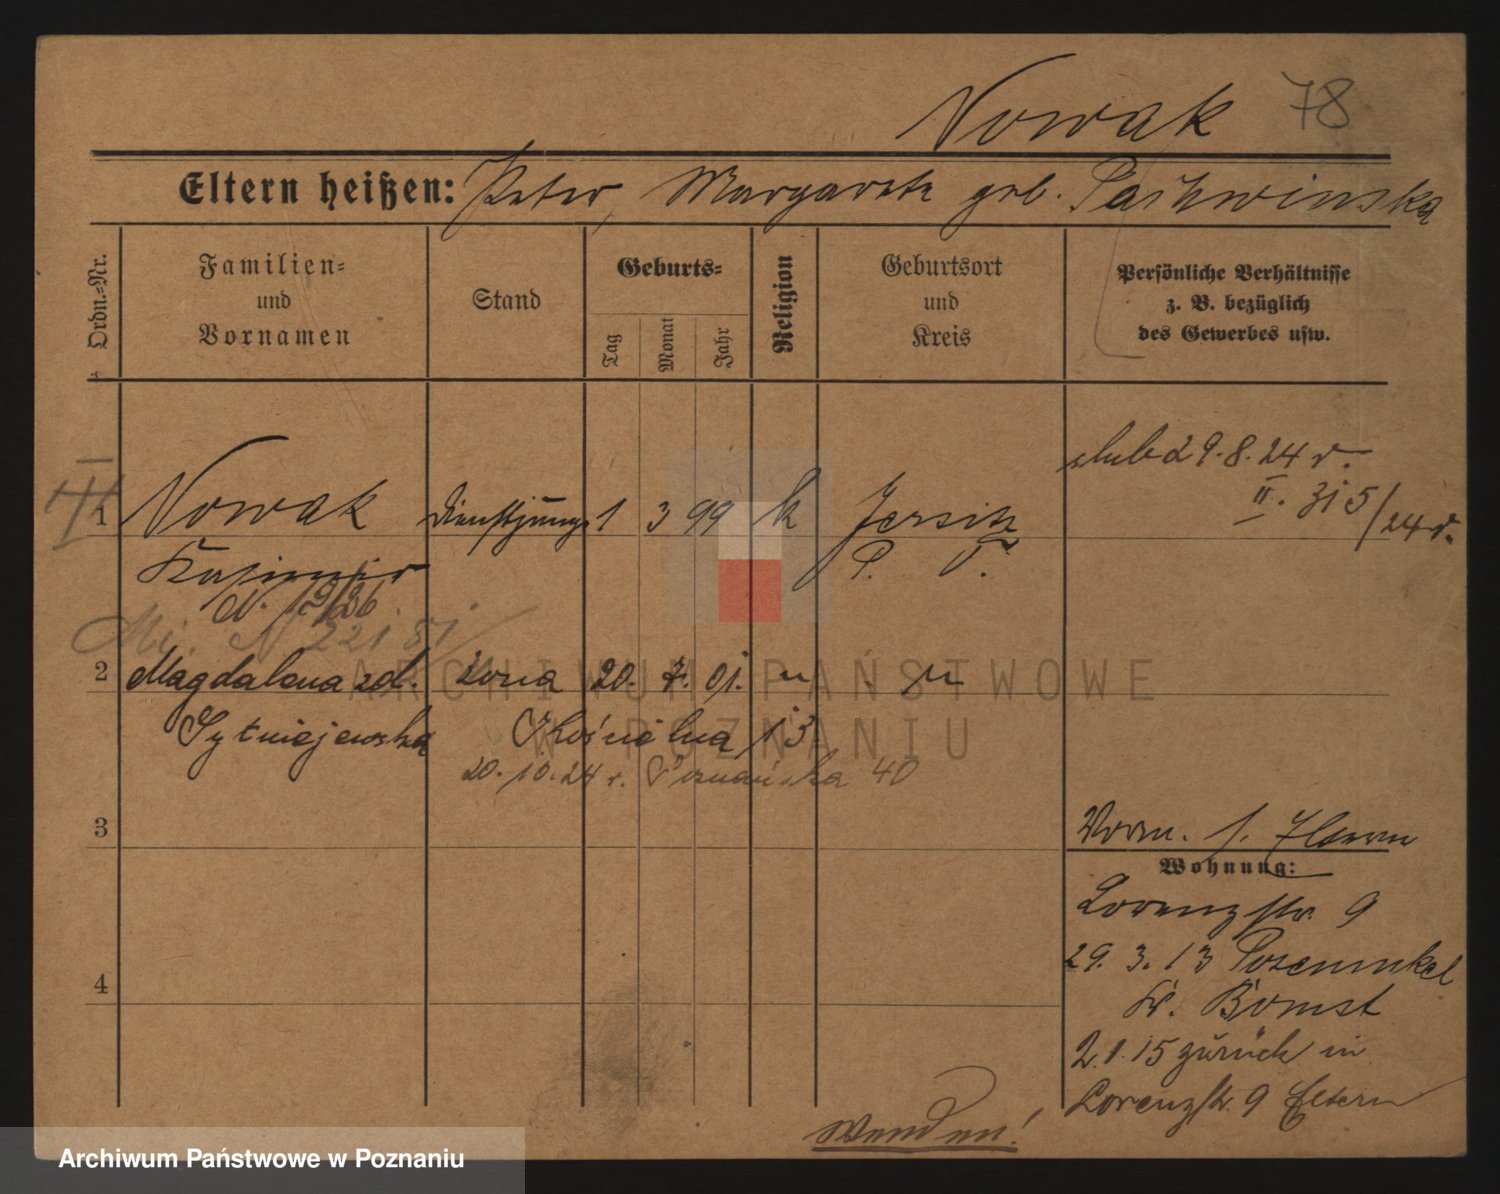 Nowak 78
Eltern heißen: Peter, Margareth geb.
Ordn.-Nr.
Familien-
und
Vornamen
Stand
Geburts-
Tag
Monat
Jahr
Religion
Geburtsort
und
Kreis
Persönliche Verhältnisse
z. B. bezüglich
des Gewerbes usw.
ślub 29.8.24 r.
II. 315/24 r.
1 Nowak Dienstjunge 1 3 99 k Jersitz
Kasimir P.
N. 19/36
2 Magdalena zd. żona 20. 7. 01. " "
Sytniejewska Kościelna 13
20.10.24 r. Poznańska 40
3
4
Vorm. s. Eltern
Wohnung:
Lorenzstr. 9
29. 3. 13 Posemukel
Kr. Bomst
2.1.15 zurück in
Lorenzstr. 9 Eltern
Wenden!
ARCHIWUM PAŃSTWOWE
W POZNANIU
Archiwum Państwowe w Poznaniu